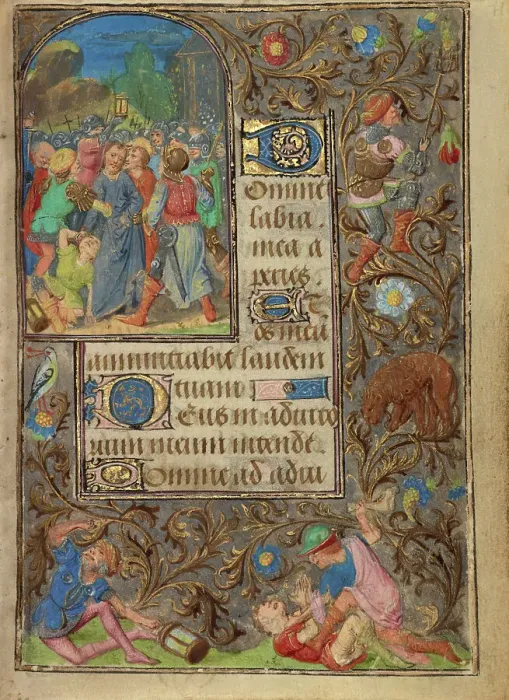 Domine
labia
mea a
peries.
Et
os meū
annuntiabit laudem
tuam
Deus in adiuto
rium meum intende
Domine ad adiu